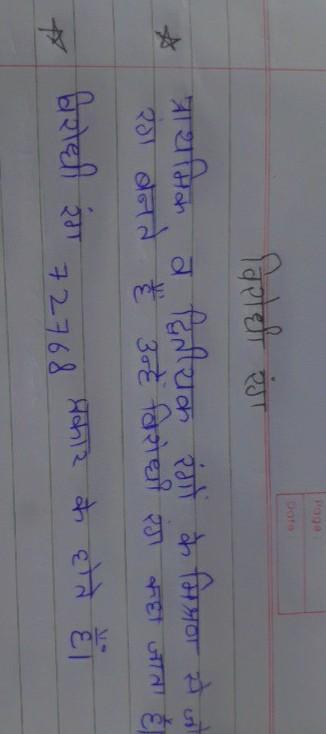 Page:
Date
विरोधी रंग
☆ प्राथमिक व द्वितीयक रंगों के मिश्रण से जो
रंग बनते हैं उन्हें विरोधी रंग कहा जाता है।
☆ विरोधी रंग 72768 प्रकार के होते हैं।